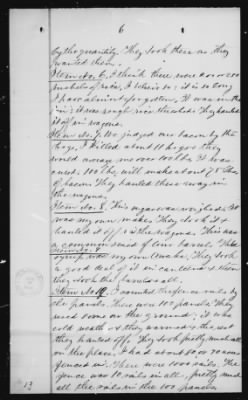 6
by the quantity. They took them as they
wanted them.
Item No. 6. I think there were 200 or 250
bushels of I believe so: it is so long
I have almost forgotten. It was in the
it was They hauled
it off in wagons.
Item No. 7. We judged our bacon by the
hogs. I killed about 11 hogs; they
would average me over 100 lbs. It was
cured. 100 lbs. will make about 75 lbs
of bacon. They hauled these away in
the wagons.
Item No. 8. This sugar was weighed. It
was my own make. They took it &
hauled it off in the wagons. This was
a common sized flour barrel. This
syrup was my own make. They took
a good deal of it in canteens & then
they took the barrels & all.
Item No. I counted the fence rails by
the panels. There were 100 panels. They
used some on the ground; it was
cold weather & they warmed & the rest
they hauled off. They took pretty much all
on the place. I had about 60 or 70 acres
fenced in. There were 1000 rails. The
fence was 10 rails in all, pretty much
all the rails in the 100 panels.
13